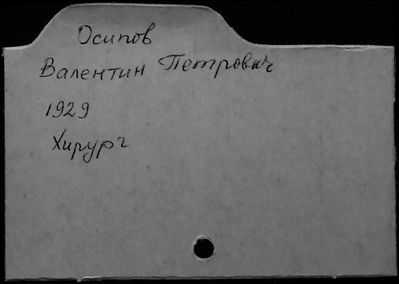 Осипов
Валентин Петрович
1929
Хирург